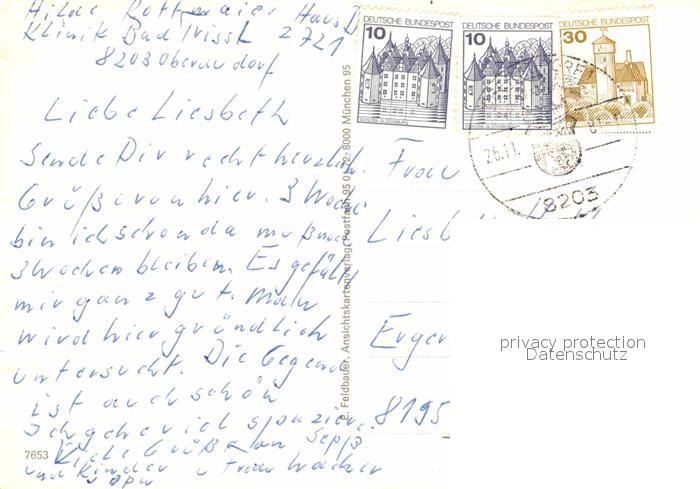 Hilde Rottmaier Haus
Klinik Bad Trissl 2721
8203 Oberaudorf
Liebe Liesbeth
Sende Dir recht herzlich
Grüße von hier. 3 Woche
bin ich schon da muß noch
3 Wochen bleiben. Es gefällt
mir ganz gut. Man
wird hier gründlich
untersucht. Die Gegend
ist auch schön
Ich gehe viel spazieren.
Viele Grüße an Sepp
und Kinder u Frau
7653
E. Feldbauer, Ansichtskartenverlag, Postfach 95 01 72, 8000 München 95
DEUTSCHE BUNDESPOST
10
SCHLOSS GLÜCKSBURG
DEUTSCHE BUNDESPOST
10
DEUTSCHE BUNDESPOST
30
26.11.
8203
Frau
Liesb
8195
privacy protection
Datenschutz